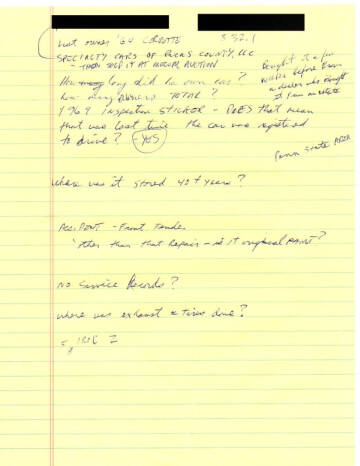 last owner '64 CORVETTE
SPECIALTY CARS OF BUCKS COUNTY, LLC
- THEN SOLD IT AT MECUM AUCTION
How long did he own car?
how many owners TOTAL?
1969 Inspection STICKER - DOES that mean
that was last time the car was registered
to drive? - YES
Bought it a few
weeks before from
a dealer who bought
it from an estate
where was it stored 40+ years?
ACCIDENT - Front Fender
other than that Repair - is it original PAINT?
NO Service Records?
where was exhaust & Tires done?